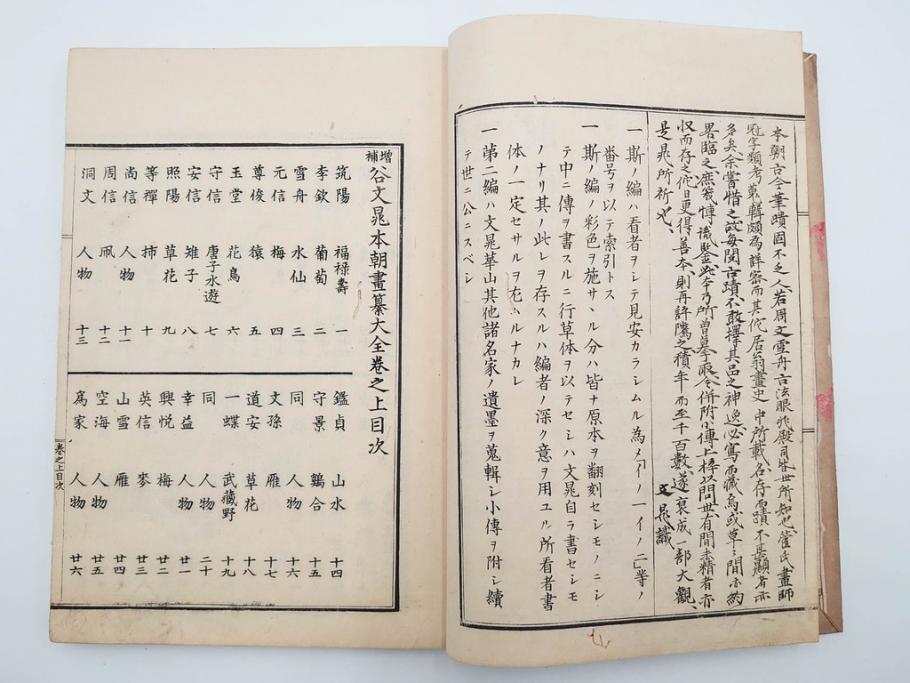 本朝古今筆蹟固不乏人若周文雪舟古法眼殿司皆世所知也菅氏畫師
冠字類考蒐輯頗為詳密而其佗居翁畫史中所載名存而蹟不甚顯者亦
多矣余嘗惜之故每閲古蹟不敢擇其品之神逸必寫而藏焉或草々間亦約
畧臨之庶幾博識鑒此本乃所曾摹今併附小傳上梓以問世有間未精者亦
収而存之佗日更得善本則再許隲之積年而至千百數遂裒成一部大觀
是晁所祈也
文晁識
一斯ノ編ハ看者ヲシテ見安カラシムル為メ「イノ一イノ二」等ノ
番号ヲ以テ索引トス
一斯ノ編ノ彩色ヲ施サヽル分ハ皆ナ原本ヲ翻刻セシモノニシ
テ中ニ傳ヲ書スルニ行草体ヲ以テセシハ文晁自ラ書セシモ
ノナリ其ノ此レヲ存スルハ編者ノ深ク意ヲ用ユル所看者書
体ノ一定セサルヲ尤ムルナカレ
一第二編ハ文晁華山其他諸名家ノ遺墨ヲ蒐輯シ小傳ヲ附シ續
テ世ニ公ニスベシ
增補谷文晁本朝畫纂大全卷之上目次
筑陽 福禄壽 一
李欽 葡萄 二
雪舟 水仙 三
元信 梅 四
尊俊 猿 五
玉堂 花鳥 六
守信 唐子水遊 七
安信 雉子 八
照陽 草花 九
等禪 柿 十
尚信 人物 十一
周信 鳳 十二
洞文 人物 十三
鑑貞 山水 十四
守景 鷄合 十五
同 人物 十六
文孫 雁 十七
道安 草花 十八
一蝶 武藏野 十九
同 人物 二十
幸益 人物 廿一
興悦 梅 廿二
英信 麥 廿三
山雪 雁 廿四
空海 人物 廿五
為家 人物 廿六
卷之上目次